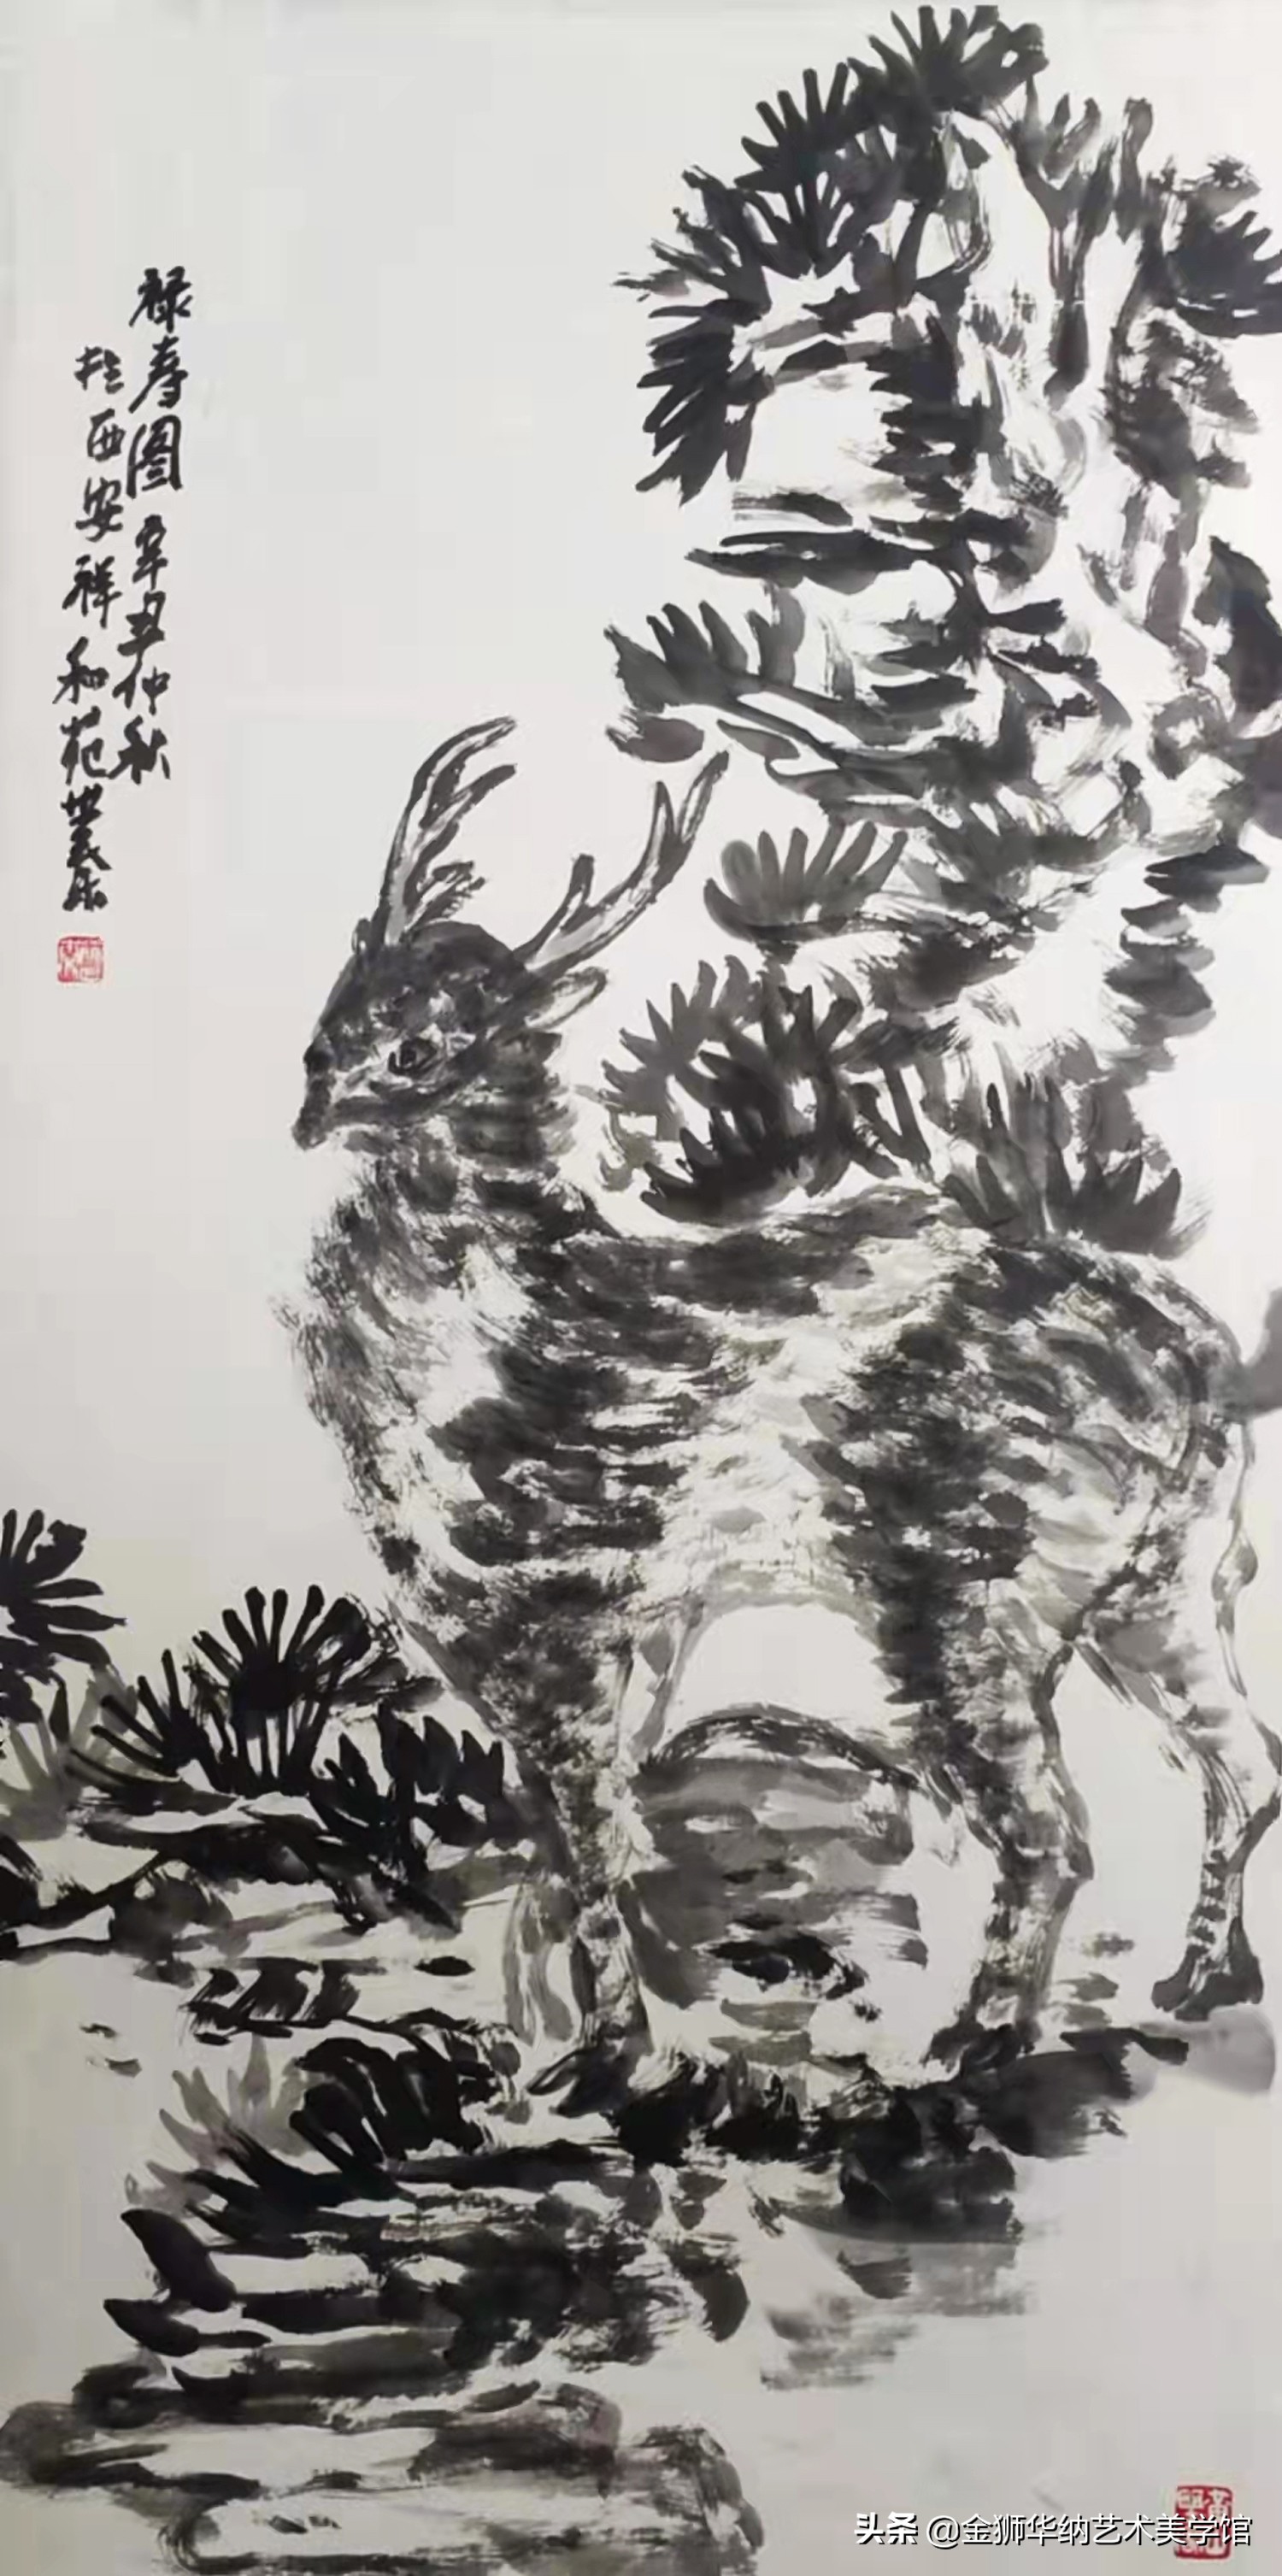 禄寿图 辛丑仲秋
于西安祥和苑
头条 @金狮华纳艺术美学馆